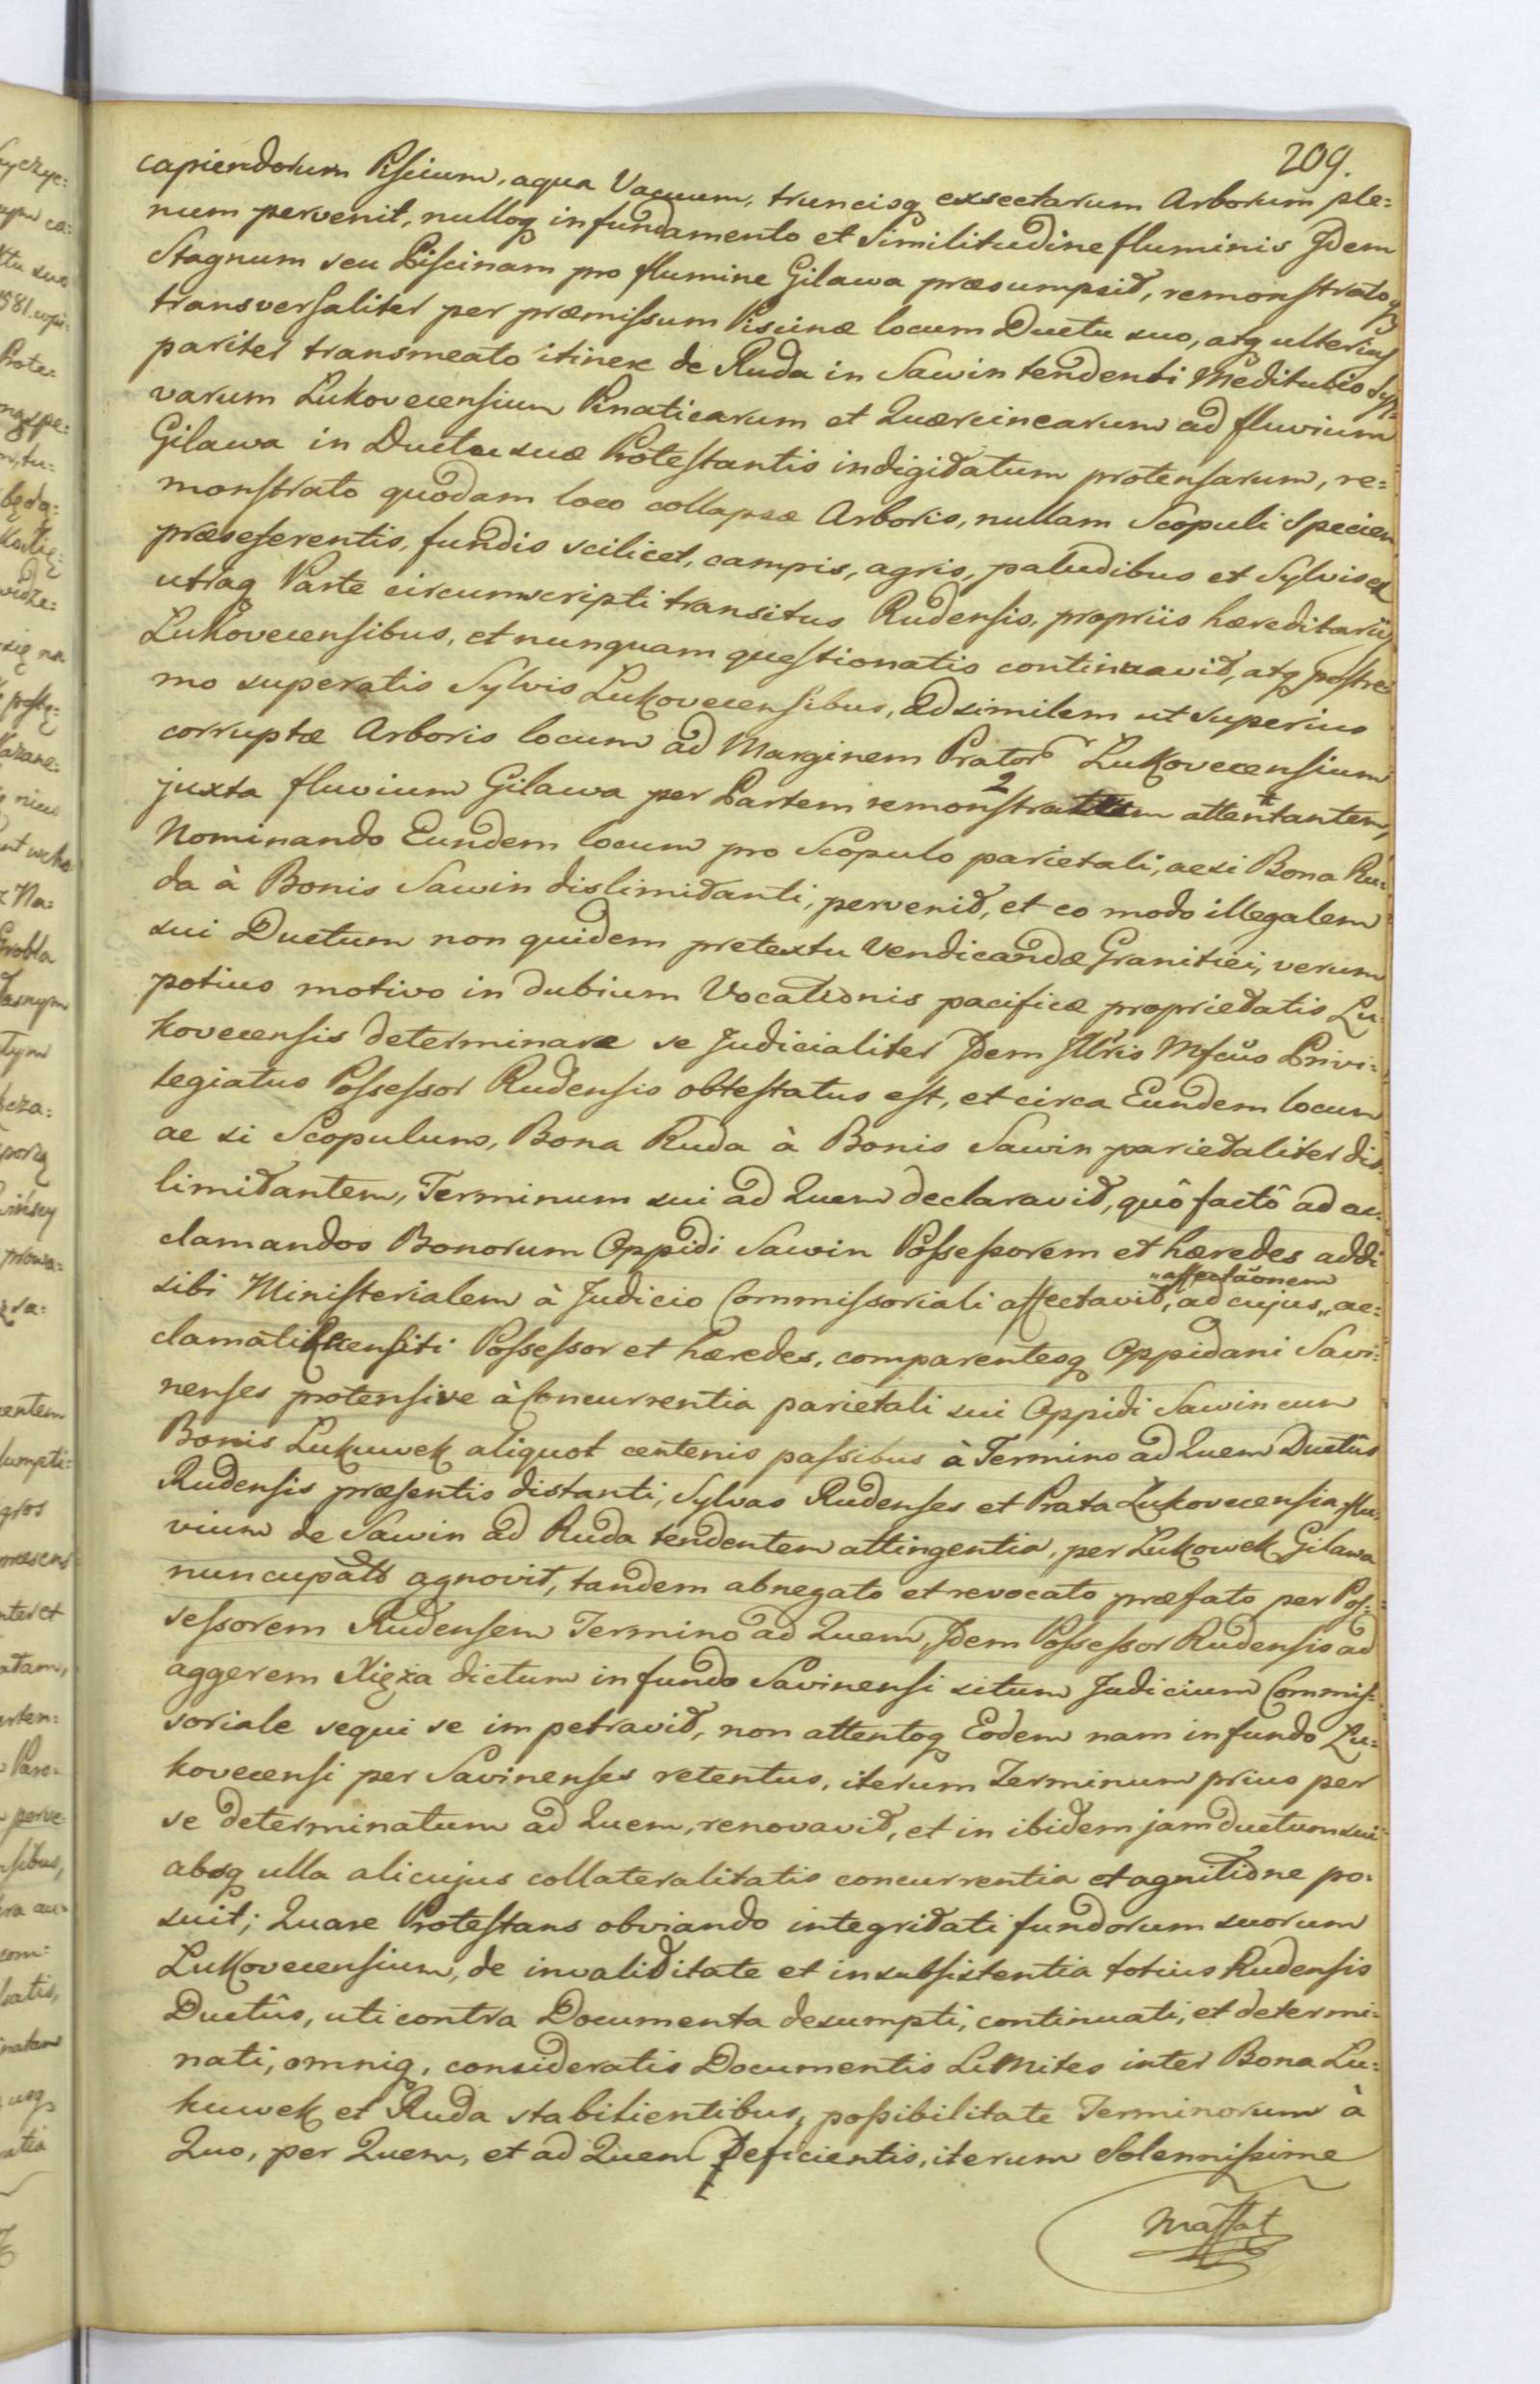 209.
capiendorum Piscium, aqua Vacuum, truncisq exsectarum Arborum ple=
num pervenit, nulloq infundamento et Similitudine fluminis Idem
Stagnum seu Piscinam pro flumine Gilawa præsumpsit, remonstratoq
transversaliter per præmissum Piscinæ locum Ductu suo, atq ulterius
pariter transmeato itinere de Ruda in Sawin tendenti Meditulio Syl=
varum Lukovecensium Pinaticarum et Quærcinearum ad fluvium
Gilawa in Ductu suæ Protestantis indigitatum protensarum, re=
monstrato quodam loco collapsæ Arboris, nullam Scopuli Speciem
præseferentis, fundis scilicet, campis, agris, paludibus et Sylvis ex
utraq Parte circumscripti transitus Rudensis, propriis hæreditariis
Lukovecensibus, et nunquam questionatis continuavit, atq postre=
mo superatis Sylvis Lukovecensibus, ad similem ut superius
corruptæ Arboris locum ad Marginem Prator Lukovecensium
juxta fluvium Gilawa per Partem remonstrattem attentantem,
Nominando Eundem locum pro Scopulo parietali, acsi Bona Ru=
da à Bonis Sawin dislimitanti, pervenit, et eo modo illegalem
sui Ductum non quidem pretextu Vendicandæ Granitiei, verum
potius motivo in dubium Vocationis pacificæ proprietatis Lu=
kovecensis determinare se Judicialiter Idem Illris Mfcus Privi=
legiatus Possessor Rudensis obtestatus est, et circa Eundem locum
ac si Scopulum, Bona Ruda à Bonis Sawin parietaliter dis=
limitantem, Terminum sui ad Quem declaravit, quô factô ad ac=
clamandos Bonorum Oppidi Sawin Possessorem et hæredes addi
sibi Ministerialem à Judicio Commissoriali affectavit, ad cujus „affectãonem„ ac=
clamati Recensiti Possessor et hæredes, comparentesq Oppidani Savi=
nenses protensive à Concurrentia parietali sui Oppidi Sawin cum
Bonis Lukuwek aliquot centenis passibus à Termino ad Quem Ductûs
Rudensis præsentis distanti, Sylvas Rudenses et Prata Lukovecensia, flu=
vium de Sawin ad Ruda tendentem attingentia, per Lukowek Gilawa
nuncupatt agnovit, tandem abnegato et revocato præfato per Pos=
sessorem Rudensem Termino ad Quem, Idem Possessor Rudensis ad
aggerem Xięża dictum in fundo Savinensi situm Judicium Commis=
soriale sequi se impetravit, non attentoq Eodem nam in fundo Lu=
kovecensi per Savinenses retentus, iterum Terminum prius per
se determinatum ad Quem, renovavit, et in ibidem jam ductum sui
absq ulla alicujus collateralitatis concurrentia et agnitione po=
suit; Quare Protestans obviando integritati fundorum suorum
Lukovecensium, de invaliditate et insubsistentia totius Rudensis
Ductûs, uti contra Documenta desumpti, continuati, et determi=
nati, omniq, consideratis Documentis Limites inter Bona Lu=
kuwek et Ruda stabilientibus, possibilitate Terminorum à
Quo, per Quem, et ad Quem Deficientis, iterum Solennissime